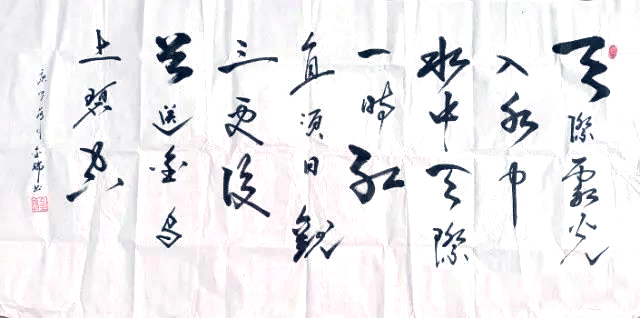 天際霞光
入水中
水中天際
一時紅
直須日觀
三更後
首送金烏
上碧空
庚子 金瑞書